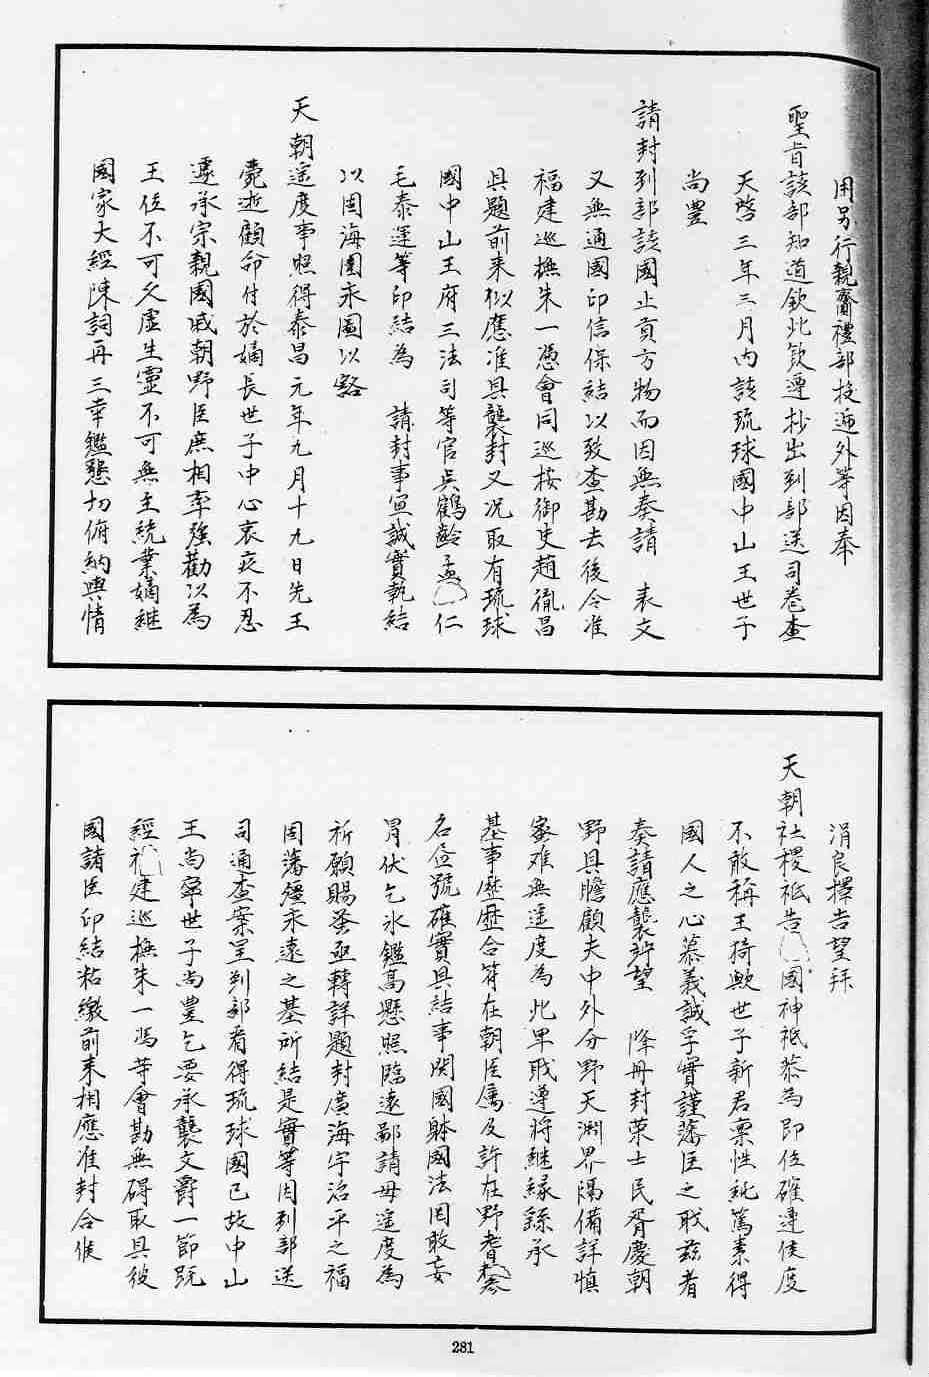 用另行親齎禮部投逓外等因奉
聖旨該部知道欽此欽遵抄出到部送司卷查
天啓三年三月內該琉球國中山王世子
尚豊
請封到部該國止貢方物而因無奏請　表文
又無通國印信保結以致查勘去後今准
福建巡撫朱一憑會同巡按御史趙胤昌
具題前来似應准具襲封又况取有琉球
國中山王府三法司等官吳鶴齡孟仁
毛泰運等印結為　請封事宣誠實執結
以固海圉永圖以
天朝遥度事照得泰昌元年九月十九日先王
薨逝顧命付於嫡長世子中心哀疚不忍
遽承宗親國戚朝野臣庶相率強勸以為
王位不可久虛生靈不可無主統業嫡継
國家大經陳詞再三幸鑑懇切俯納輿情
涓良擇吉望拜
天朝社稷祗告國神祗恭為即位確遵侯度
不敢稱王猗歟世子新君禀性純篤素得
國人之心慕義誠孚實謹藩臣之職茲者
奏請應襲竚望　降冊封荣士民胥慶朝
野具瞻顧夫中外分野天淵界隔備詳慎
蜜难無遥度為此卑職遵将継緣繇承
基事歷歷合符在朝臣属及許在野耆
名位號確實具結事関國躰國法罔敢妄
冐伏乞氷鑑高懸照臨遠鄙請毋遥度為
祈願賜蚤亟轉詳題封廣海宇治平之福
固藩疆永遠之基所結是實等因到部送
司通查案呈到部看得琉球國已故中山
王尚寧世子尚豊乞要承襲文爵一節既
經建巡撫朱一馮等會勘無碍取具彼
國諸臣印結粘繳前来相應准封合候
281